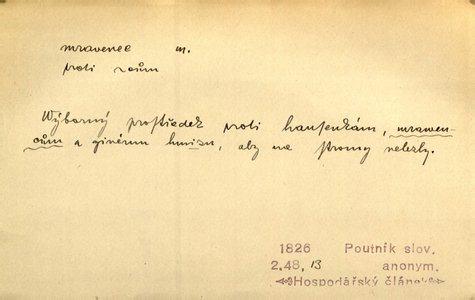 mravenec m.
proti
Wýborný prostředek proti hausenkám, mrawen-
cům a ginému hmisu, aby na stromy nelezly.
1826 Poutník slov.
2.48, 13 anonym.
Hospodářský článek